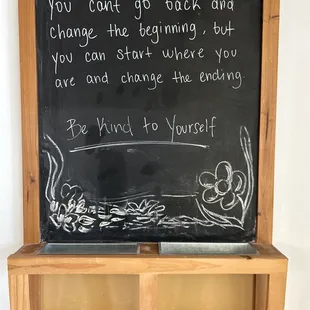 you can't go back and
change the beginning, but
you can start where you
are and change the ending.
Be Kind to Yourself